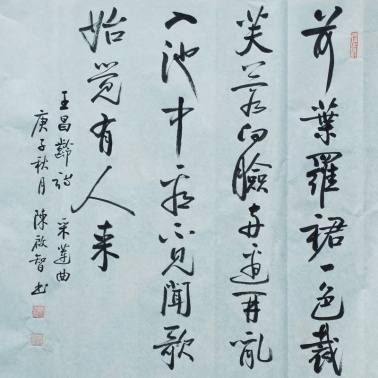 荷葉羅裙一色裁
芙蓉向臉两边开亂
入池中看不見聞歌
始觉有人来
王昌齡诗 采蓮曲
庚子秋月 陳啟智书